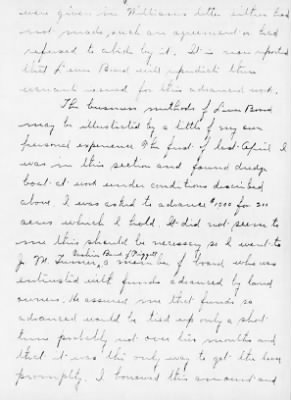 were given in Williams letter either had
not made such an agreement or had
refused to abide by it. It is now reported
that Levee Board will repudiate these
warrants issued for this advanced work.
The business methods of Levee Board
may be illustrated by a little of my own
personal experience. The first of last April I
was in this section and found dredge
boat at work under conditions described
above. I was asked to advance $1000 for 200
acres which I hold. It did not seem to
me this should be necessary so I went to
Cashier Bank of Piggott
J. M. Turner, a member of board who was
entrusted with funds advanced by land
owners. He assured me that funds so
advanced would be tied up only a short
time probably not over six months and
that it was the only way to get the levee
promptly. I borrowed this amount and